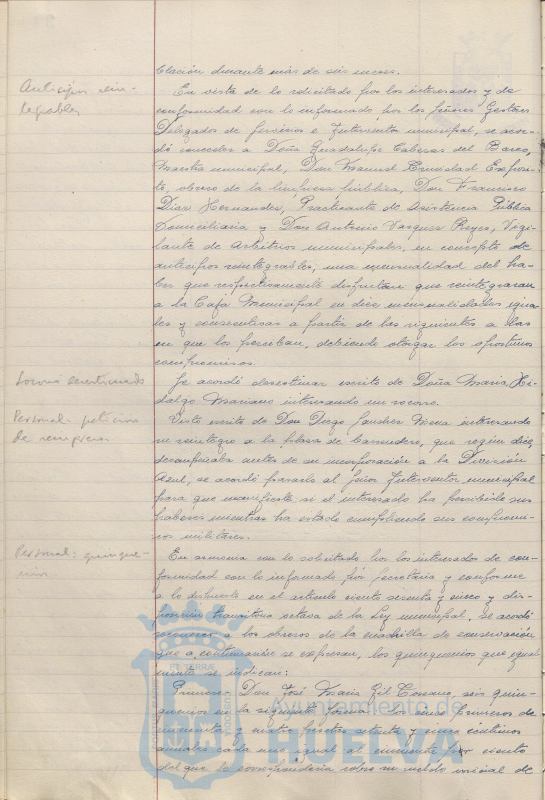 blación durante más de seis meses.
Anticipos rein-
tegrables
En vista de lo solicitado por los interesados y de
conformidad con lo informado por los Señores Gestores
Delegados de Servicios e Interventor municipal, se acor-
dó conceder a Doña Guadalupe Cabezas del Barco,
Maestra municipal, Don Manuel Trinidad Expósi-
to, obrero de la limpieza pública, Don Francisco
Díaz Hernández, Practicante de Asistencia Pública
Domiciliaria y Don Antonio Vazquez Reyes, Vigi-
lante de Arbitrios municipales, en concepto de
anticipos reintegrables, una mensualidad del ha-
ber que respectivamente disfrutan que reintegraran
a la Caja Municipal en diez mensualidades igua-
les y consecutivas a partir de las siguientes a las
en que los perciban, debiendo otorgar los oportunos
compromisos.
Socorro
Se acordó desestimar escrito de Doña Maria Hi-
dalgo Mariano interesando un socorro.
Personal: petición
de reingreso
Visto escrito de Don Diego Sanchez Mena interesando
su reintegro a la plaza de Barrendero, que según dice
desempeñaba antes de su incorporación a la División
Azul, se acordó pasarlo al Señor Interventor municipal
para que manifieste si el interesado ha percibido sus
haberes mientras ha estado cumpliendo sus compromi-
sos militares.
Personal: quinque-
nios
En armonia con lo solicitado por los interesados de con-
formidad con lo informado por Secretaría y conforme
a lo dispuesto en el artículo ciento sesenta y cinco y dis-
posición transitoria octava de la Ley municipal, se acordó
reconocer a los obreros de la cuadrilla de conservación
que a continuación se expresan, los quinquenios que igual-
mente se indican:
Primero: Don José Maria Gil Toscano, seis quin-
quenios en la siguiente forma: los cinco primeros de
cincuenta y cuatro pesetas setenta y cinco céntimos
anuales cada uno igual al cincuenta por ciento
del que le correspondería sobre su sueldo inicial de
Ayuntamiento de
HUELVA